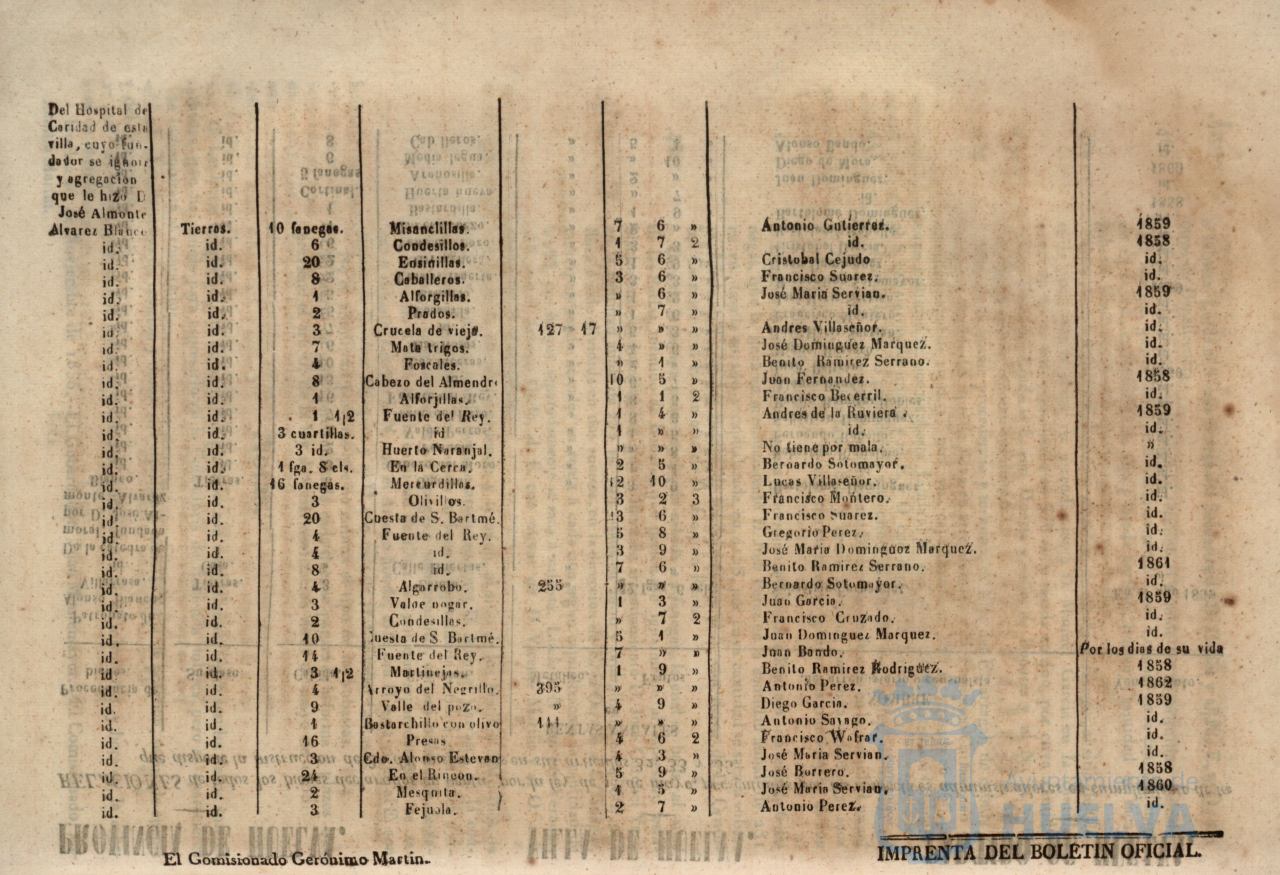 Del Hospital de
Caridad de esta
villa, cuyo fun-
dador se ignora
y agregación
que le hizo D
José Almonte
Alvarez Blanco Tierras. 10 fanegas. Misanclillas. 7 6 » Antonio Gutierrez. 1859
id. id. 6 Condesillos. 1 7 2 id. 1858
id. id. 20 Ensinillas. 5 6 » Cristobal Cejudo id.
id. id. 8 Caballeros. 3 6 » Francisco Suarez. id.
id. id. 1 Alforgillas. » 6 » José Maria Servian. 1859
id. id. 2 Prados. » 7 » id. id.
id. id. 3 Crucela de vieja. 127 17 » » » Andres Villaseñor. id.
id. id. 7 Mata trigos. 4 » » José Dominguez Marquez. id.
id. id. 4 Foscales. » 1 » Benito Ramirez Serrano. id.
id. id. 8 Cabezo del Almendr 10 5 » Juan Fernandez. 1858
id. id. 1 Alforjillas. 1 1 2 Francisco Becerril. id.
id. id. 1 1|2 Fuente del Rey. 1 4 » Andres de la Ruviera. 1859
id. id. 3 cuartillas. id 1 » » id. id.
id. id. 3 id. Huerto Naranjal. » » » No tiene por mala. »
id. id. 1 fga. 8 cls. En la Cerca. 2 5 » Bernardo Sotomayor. id.
id. id. 16 fanegas. Mercurdillas. 12 10 » Lucas Villaseñor. id.
id. id. 3 Olivillos. 3 2 3 Francisco Montero. id.
id. id. 20 Cuesta de S. Bartmé. 13 6 » Francisco Suarez. id.
id. id. 4 Fuente del Rey. 5 8 » Gregorio Perez. id.
id. id. 4 id. 3 9 » José Maria Dominguez Marquez. id.
id. id. 8 id. 7 6 » Benito Ramirez Serrano. 1861
id. id. 4 Algarrobo. 255 » » » Bernardo Sotomayor. id.
id. id. 3 Valde nogar. 1 3 » Juan Garcia. 1859
id. id. 2 Condesillas. » 7 2 Francisco Cruzado. id.
id. id. 10 Cuesta de S. Bartmé. 5 1 » Juan Dominguez Marquez. id.
id. id. 14 Fuente del Rey. 7 » » Juan Bando. Por los dias de su vida
id. id. 3 1|2 Martinejas. 1 9 » Benito Ramirez Rodriguez. 1858
id. id. 4 Arroyo del Negrillo. 395 » » » Antonio Perez. 1862
id. id. 9 Valle del pozo. » 4 9 » Diego Garcia. 1859
id. id. 1 Bastarchillo con olivo 111 » » » Antonio Savago. id.
id. id. 16 Presas 4 6 2 Francisco Wafrar. id.
id. id. 3 Cdo. Alonso Estevan 4 3 » José Maria Servian. id.
id. id. 24 En el Rincon. 5 9 » José Borrero. 1858
id. id. 2 Mesquita. 4 5 » José Maria Servian. 1860
id. id. 3 Fejuela. 2 7 » Antonio Perez. id.
El Comisionado Gerónimo Martin.
IMPRENTA DEL BOLETIN OFICIAL.
Ayuntamiento de
HUELVA